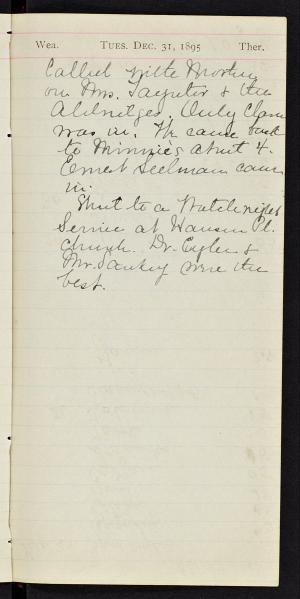 Wea. TUES. DEC. 31, 1895 Ther.
Called with Mother
on Mrs. Taynter & the
Aldridges. Only Clara
was in. We came back
to Minnie's about 4.
Ernest Seelman came
in.
Went to a Watch night
Service at Hanson Pl.
church. Dr. &
Mr. Sankey were the
best.